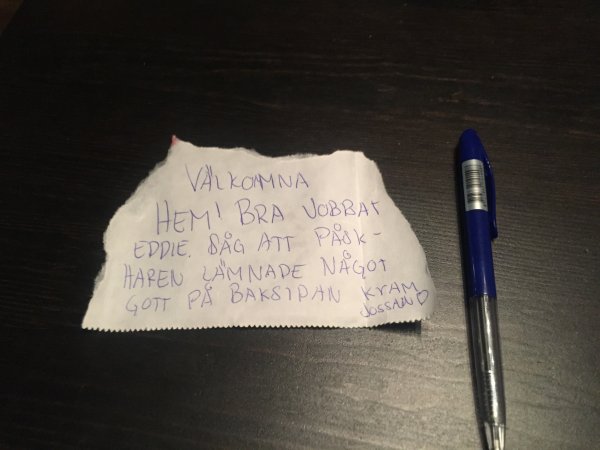 VÄLKOMNA
HEM! BRA JOBBAT
EDDIE. SÅG ATT PÅSK-
HAREN LÄMNADE NÅGOT
GOTT PÅ BAKSIDAN KRAM
JOSSAN♡